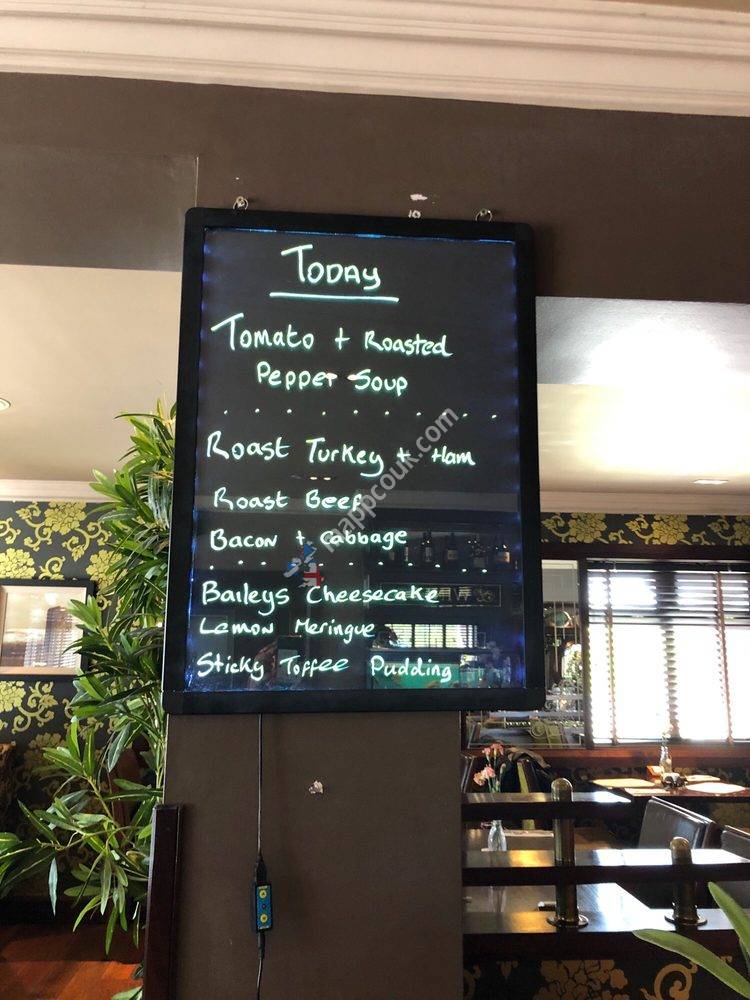 TODAY
Tomato + Roasted
Pepper Soup
Roast Turkey + Ham
Roast Beef
Bacon + Cabbage
Baileys Cheesecake
Lemon Meringue
Sticky Toffee Pudding
mappcouk.com